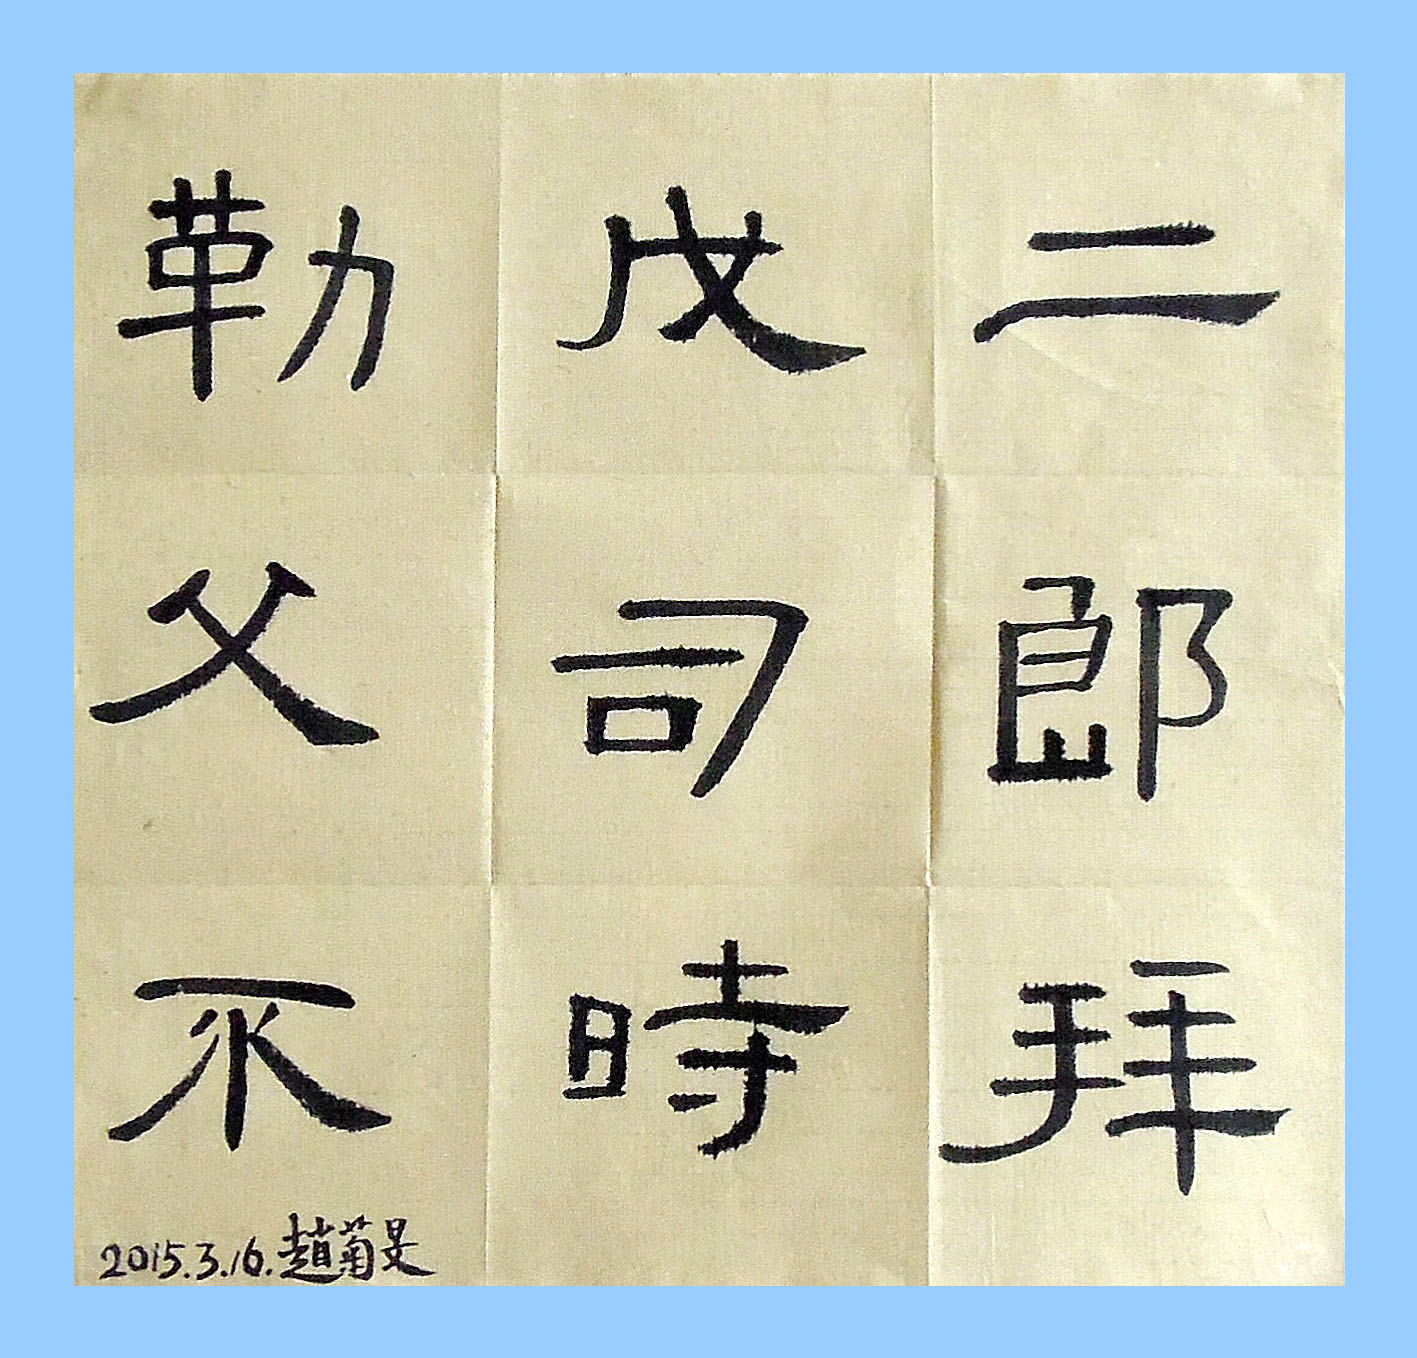 二郎拜
戊司時
勒父不
2015.3.16.趙菊旻